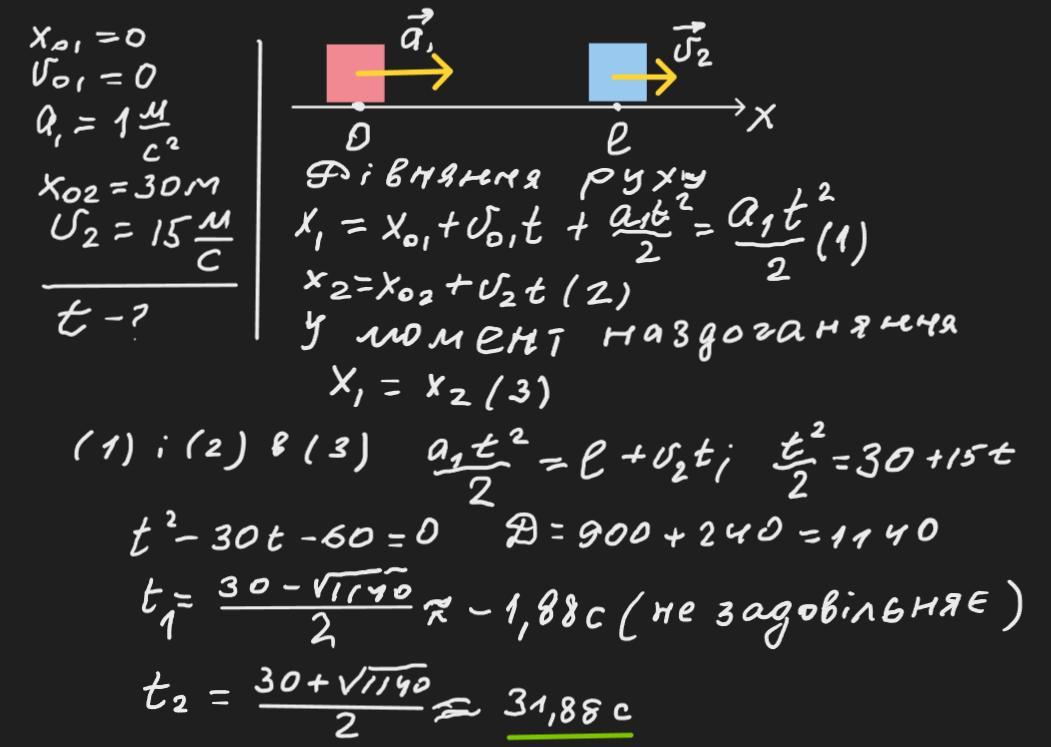 x₀₁ = 0
υ₀₁ = 0
a₁ = 1 м/с²
x₀₂ = 30м
υ₂ = 15 м/с
t - ?
a⃗₁
υ⃗₂
0
l
x
Рівняння руху
x₁ = x₀₁ + υ₀₁t + a₁t²/2 = a₁t²/2 (1)
x₂ = x₀₂ + υ₂t (2)
У момент наздоганяння
x₁ = x₂ (3)
(1) і (2) в (3) a₁t²/2 = l + υ₂t; t²/2 = 30 + 15t
t² - 30t - 60 = 0 D = 900 + 240 = 1140
t₁ = (30 - √1140)/2 ≈ - 1,88с (не задовільняє)
t₂ = (30 + √1140)/2 ≈ 31,88с